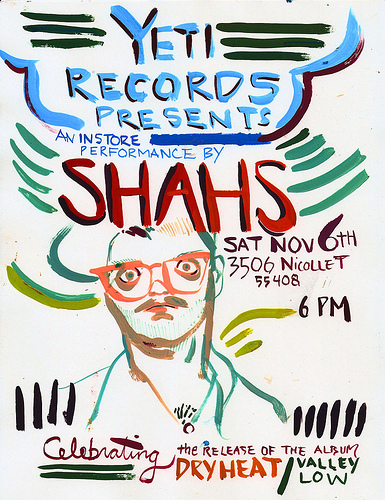 YETI
RECORDS
PRESENTS
AN INSTORE
PERFORMANCE BY
SHAHS
SAT NOV 6TH
3506 NICOLLET
55408
6 PM
Celebrating the RELEASE OF THE ALBUM
DRY HEAT / VALLEY
LOW